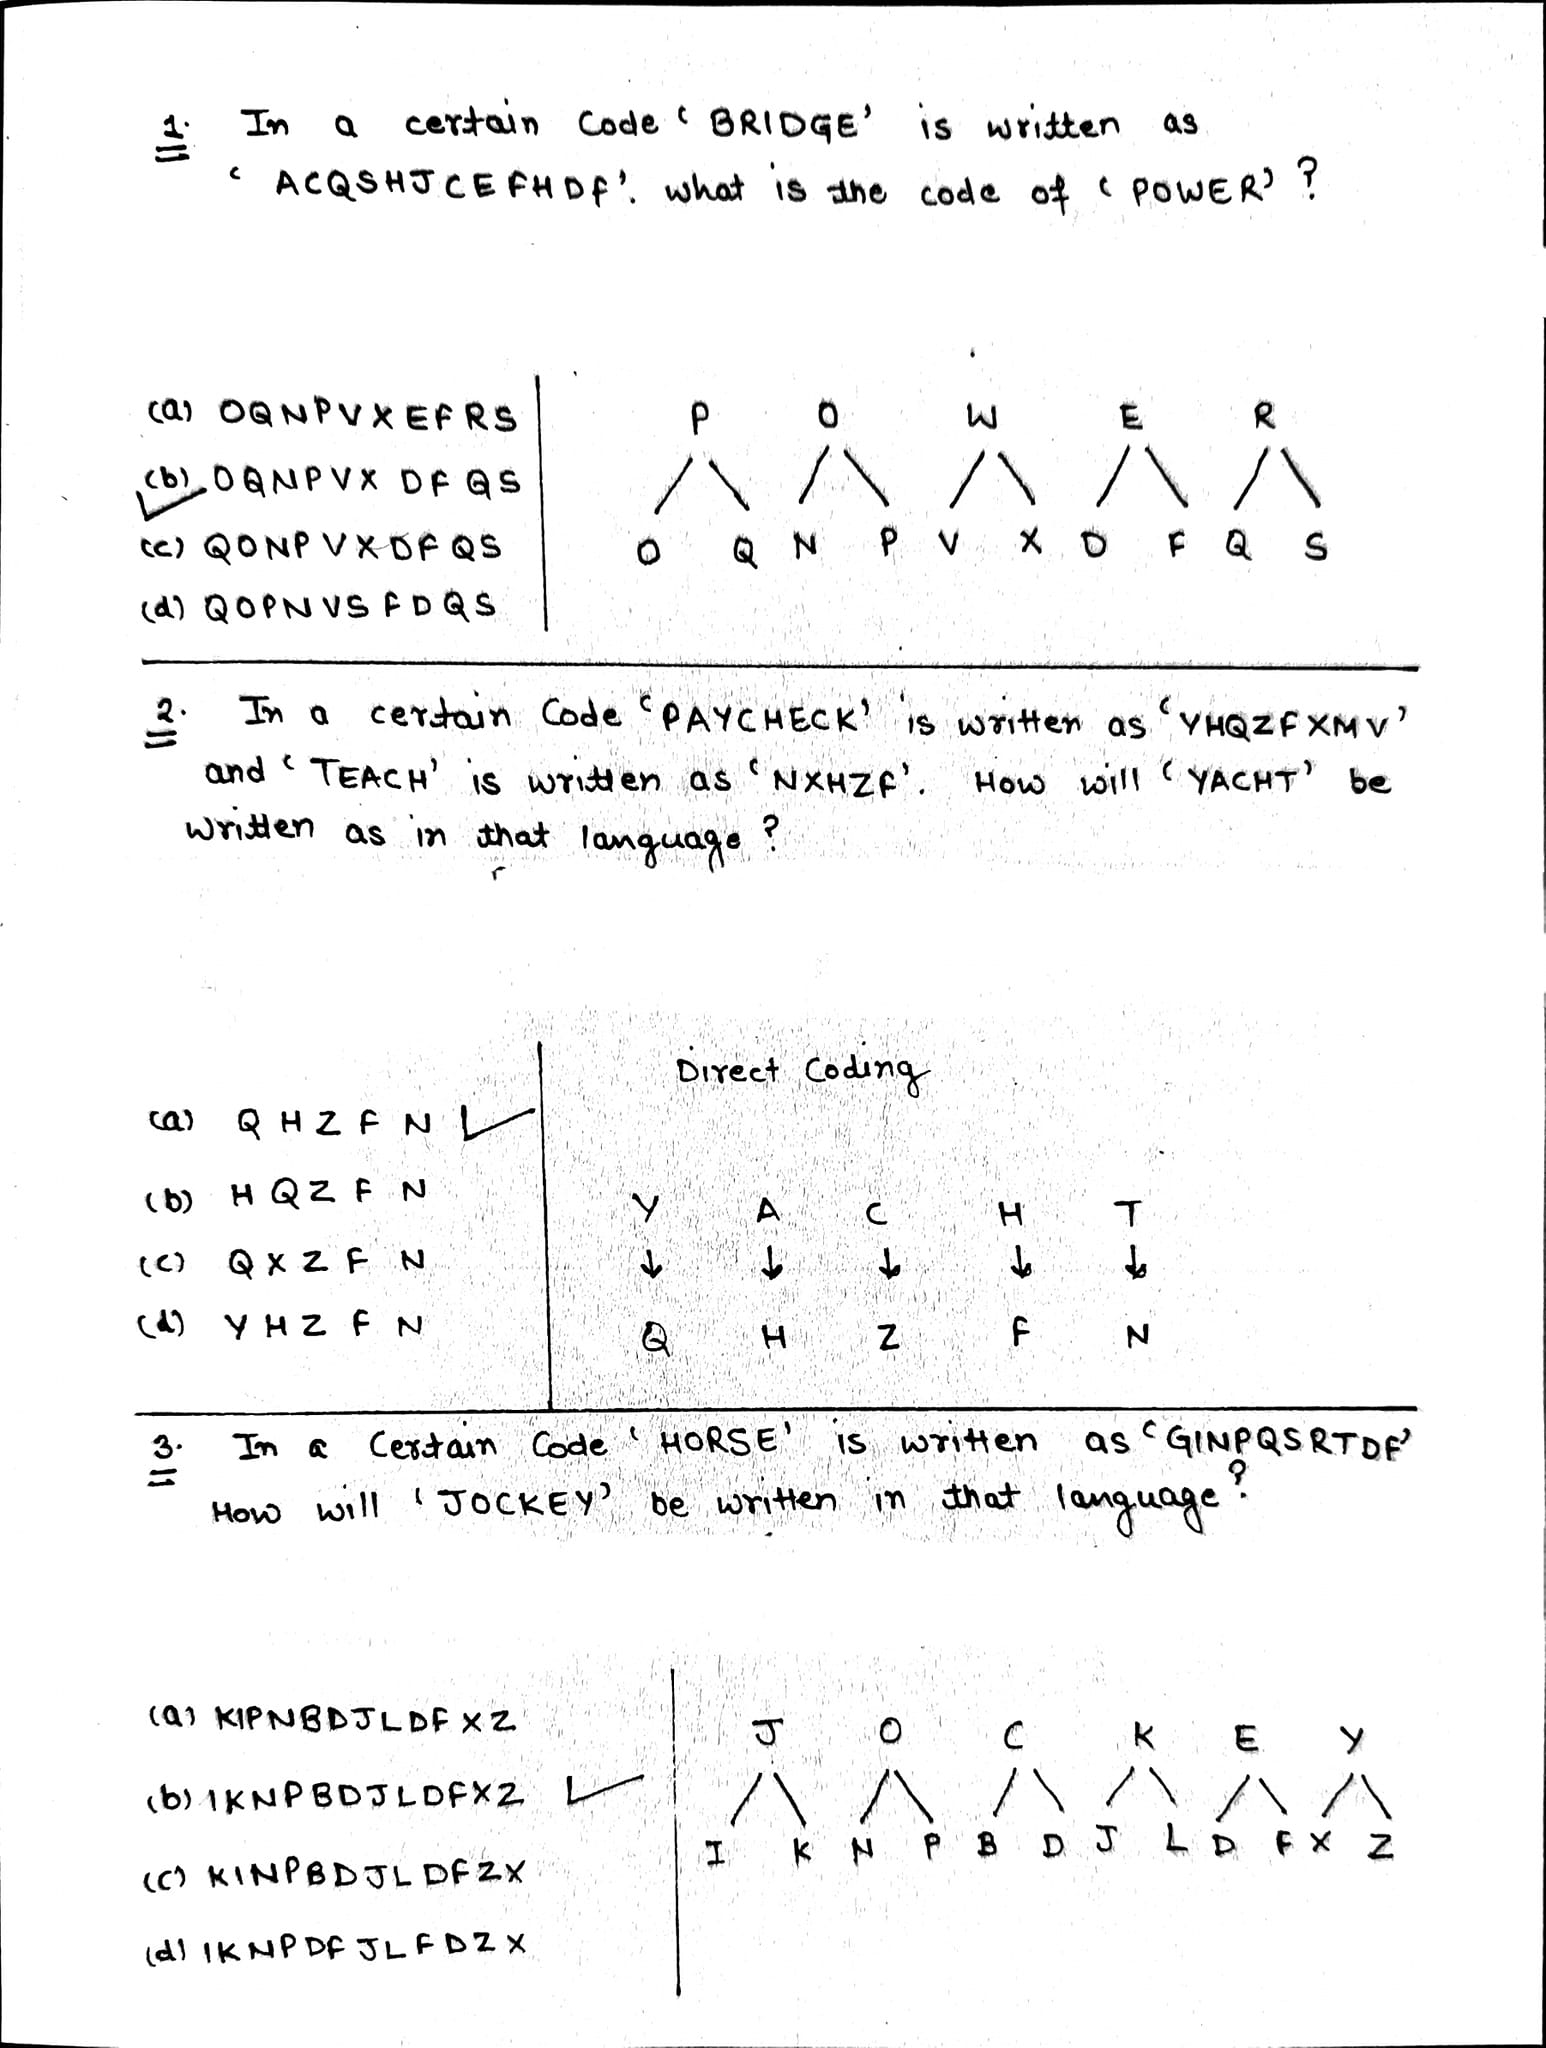 1. In a certain Code ‘BRIDGE’ is written as
‘ACQSHJCEFHDF’. what is the code of ‘POWER’?
(a) OQNPVXEFRS
(b) OQNPVX DFQS
(c) QONPVXDFQS
(d) QOPNVSFDQS
P O W E R
O Q N P V X D F Q S
2. In a certain Code ‘PAYCHECK’ is written as ‘YHQZFXMV’
and ‘TEACH’ is written as ‘NXHZF’. How will ‘YACHT’ be
written as in that language?
Direct Coding
(a) Q H Z F N
(b) H Q Z F N
(c) Q X Z F N
(d) Y H Z F N
Y A C H T
↓ ↓ ↓ ↓ ↓
Q H Z F N
3. In a Certain Code ‘HORSE’ is written as ‘GINPQSRTDF’
How will ‘JOCKEY’ be written in that language?
(a) KIPNBDJLDFXZ
(b) IKNPBDJLDFXZ
(c) KINPBDJLDFZX
(d) IKNPDFJLFDZX
J O C K E Y
I K N P B D J L D F X Z